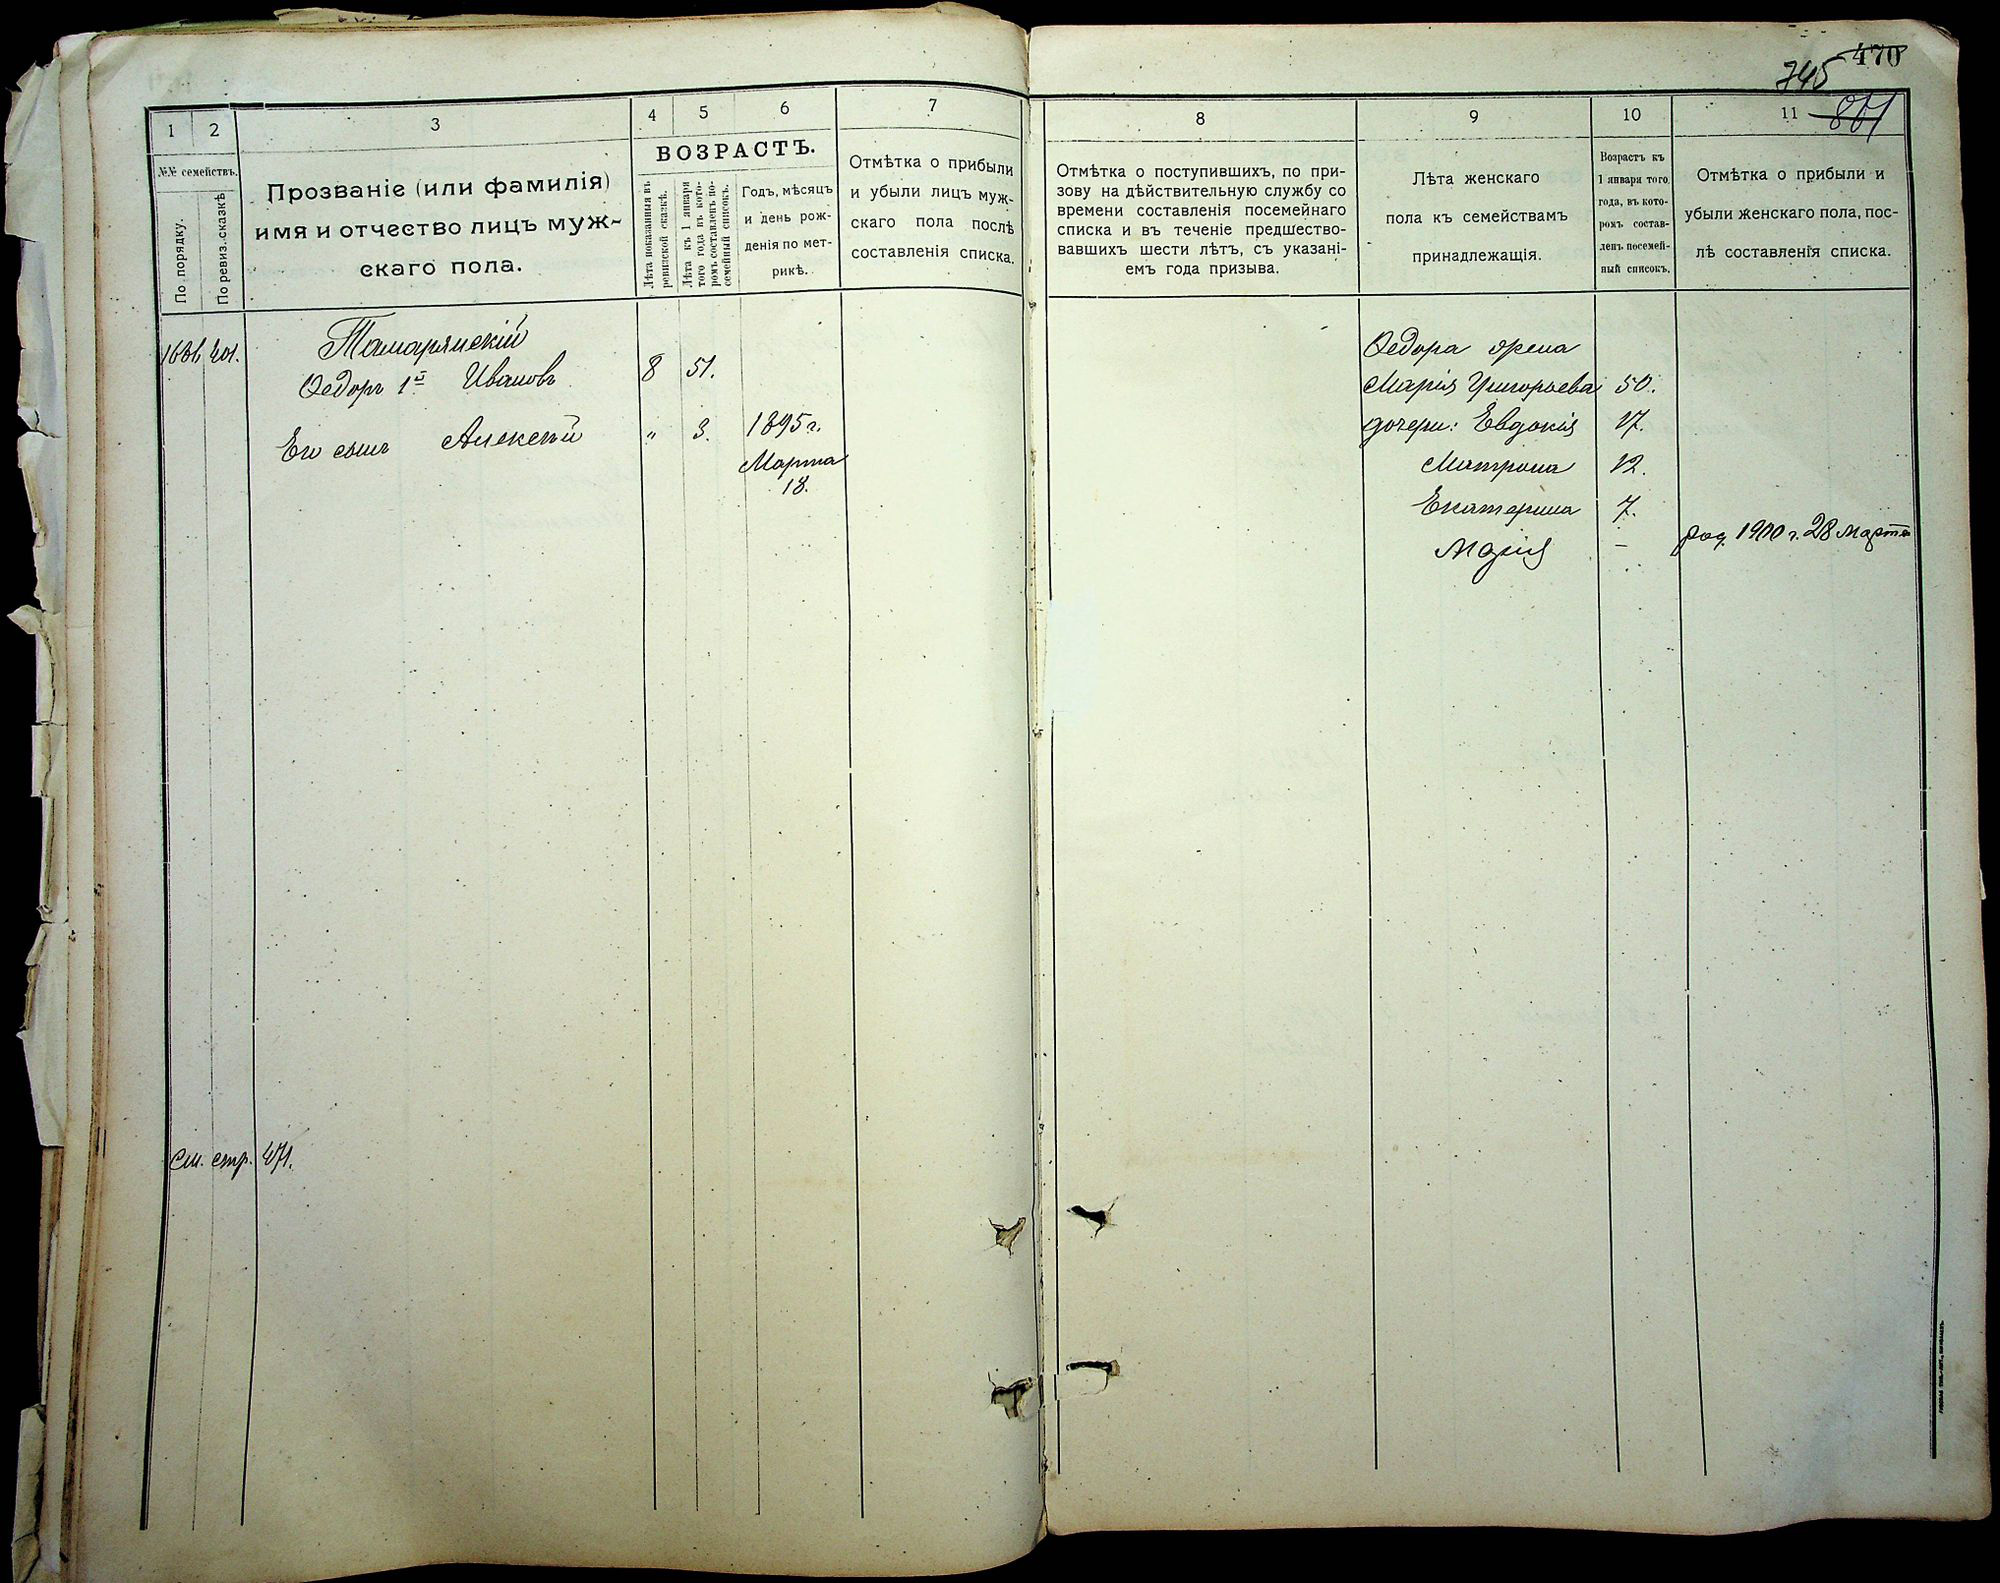 470
745
861
1
2
3
4
5
6
7
№№ семействъ.
По порядку.
По ревиз. сказкѣ
Прозваніе (или фамилія)
имя и отчество лицъ муж-
скаго пола.
ВОЗРАСТЪ.
Лѣта показанныя въ
ревизской сказкѣ.
Лѣта къ 1 января
того года въ кото-
ромъ составленъ по-
семейный списокъ.
Годъ, мѣсяцъ
и день рож-
денія по мет-
рикѣ.
Отмѣтка о прибыли
и убыли лицъ муж-
скаго пола послѣ
составленія списка.
401.
Тамарянскій
Ѳедоръ 1й Ивановъ 8 51.
Его сынъ Алексѣй " 3. 1895 г.
Марта
18.
См. стр. 471.
8
9
10
11
Отмѣтка о поступившихъ, по при-
зову на дѣйствительную службу со
времени составленія посемейнаго
списка и въ теченіе предшество-
вавшихъ шести лѣтъ, съ указані-
емъ года призыва.
Лѣта женскаго
пола къ семействамъ
принадлежащія.
Возрастъ къ
1 января того
года, въ кото-
ромъ состав-
ленъ посемей-
ный списокъ.
Отмѣтка о прибыли и
убыли женскаго пола, пос-
лѣ составленія списка.
Ѳедора жена
Марія Григорьева 50.
дочери: Евдокія 17.
Матрона 12.
Екатерина 7.
Марія – род. 1900 г. 28 марта